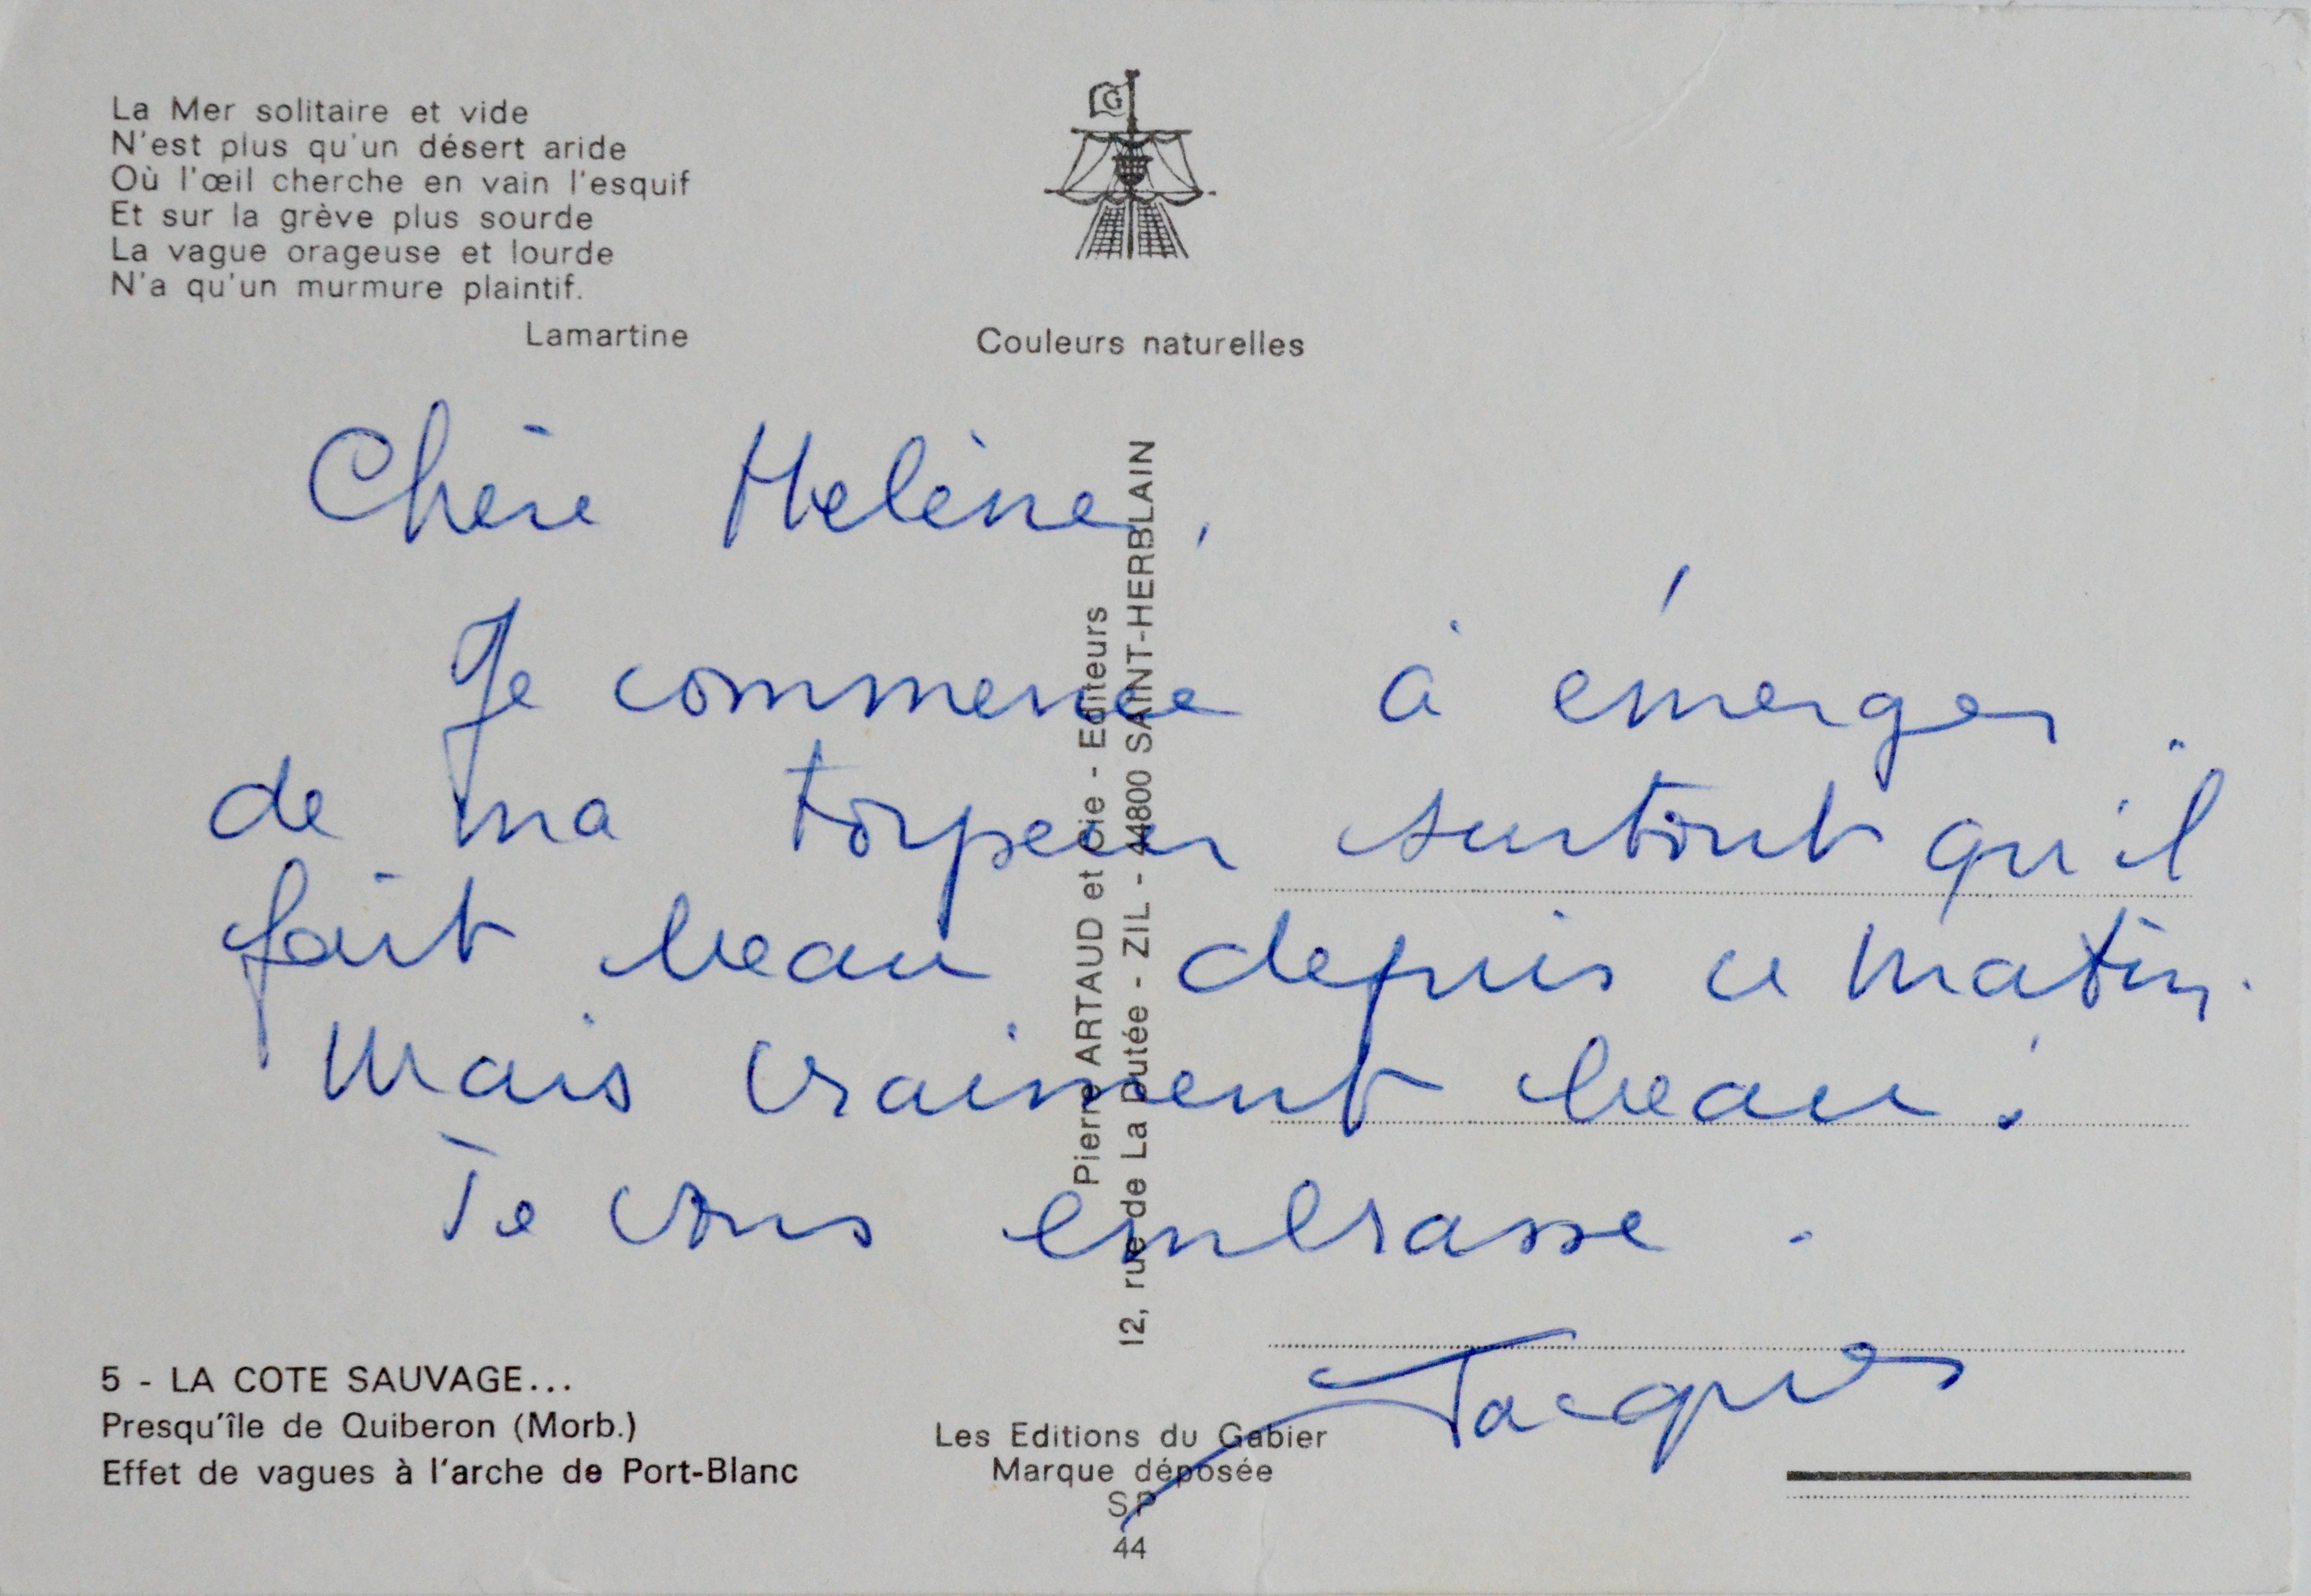 La Mer solitaire et vide
N'est plus qu'un désert aride
Où l'œil cherche en vain l'esquif
Et sur la grève plus sourde
La vague orageuse et lourde
N'a qu'un murmure plaintif.
Lamartine
G
Couleurs naturelles
Chère Helène,
Je commence à émerger
de ma torpeur surtout qu'il
fait beau depuis ce matin.
Mais vraiment beau.
Je vous embrasse.
Jacques
Pierre ARTAUD et Cie - Editeurs
12, rue de La Dutée - ZIL - 44800 SAINT-HERBLAIN
5 - LA COTE SAUVAGE...
Presqu'île de Quiberon (Morb.)
Effet de vagues à l'arche de Port-Blanc
Les Editions du Gabier
Marque déposée
SP
44